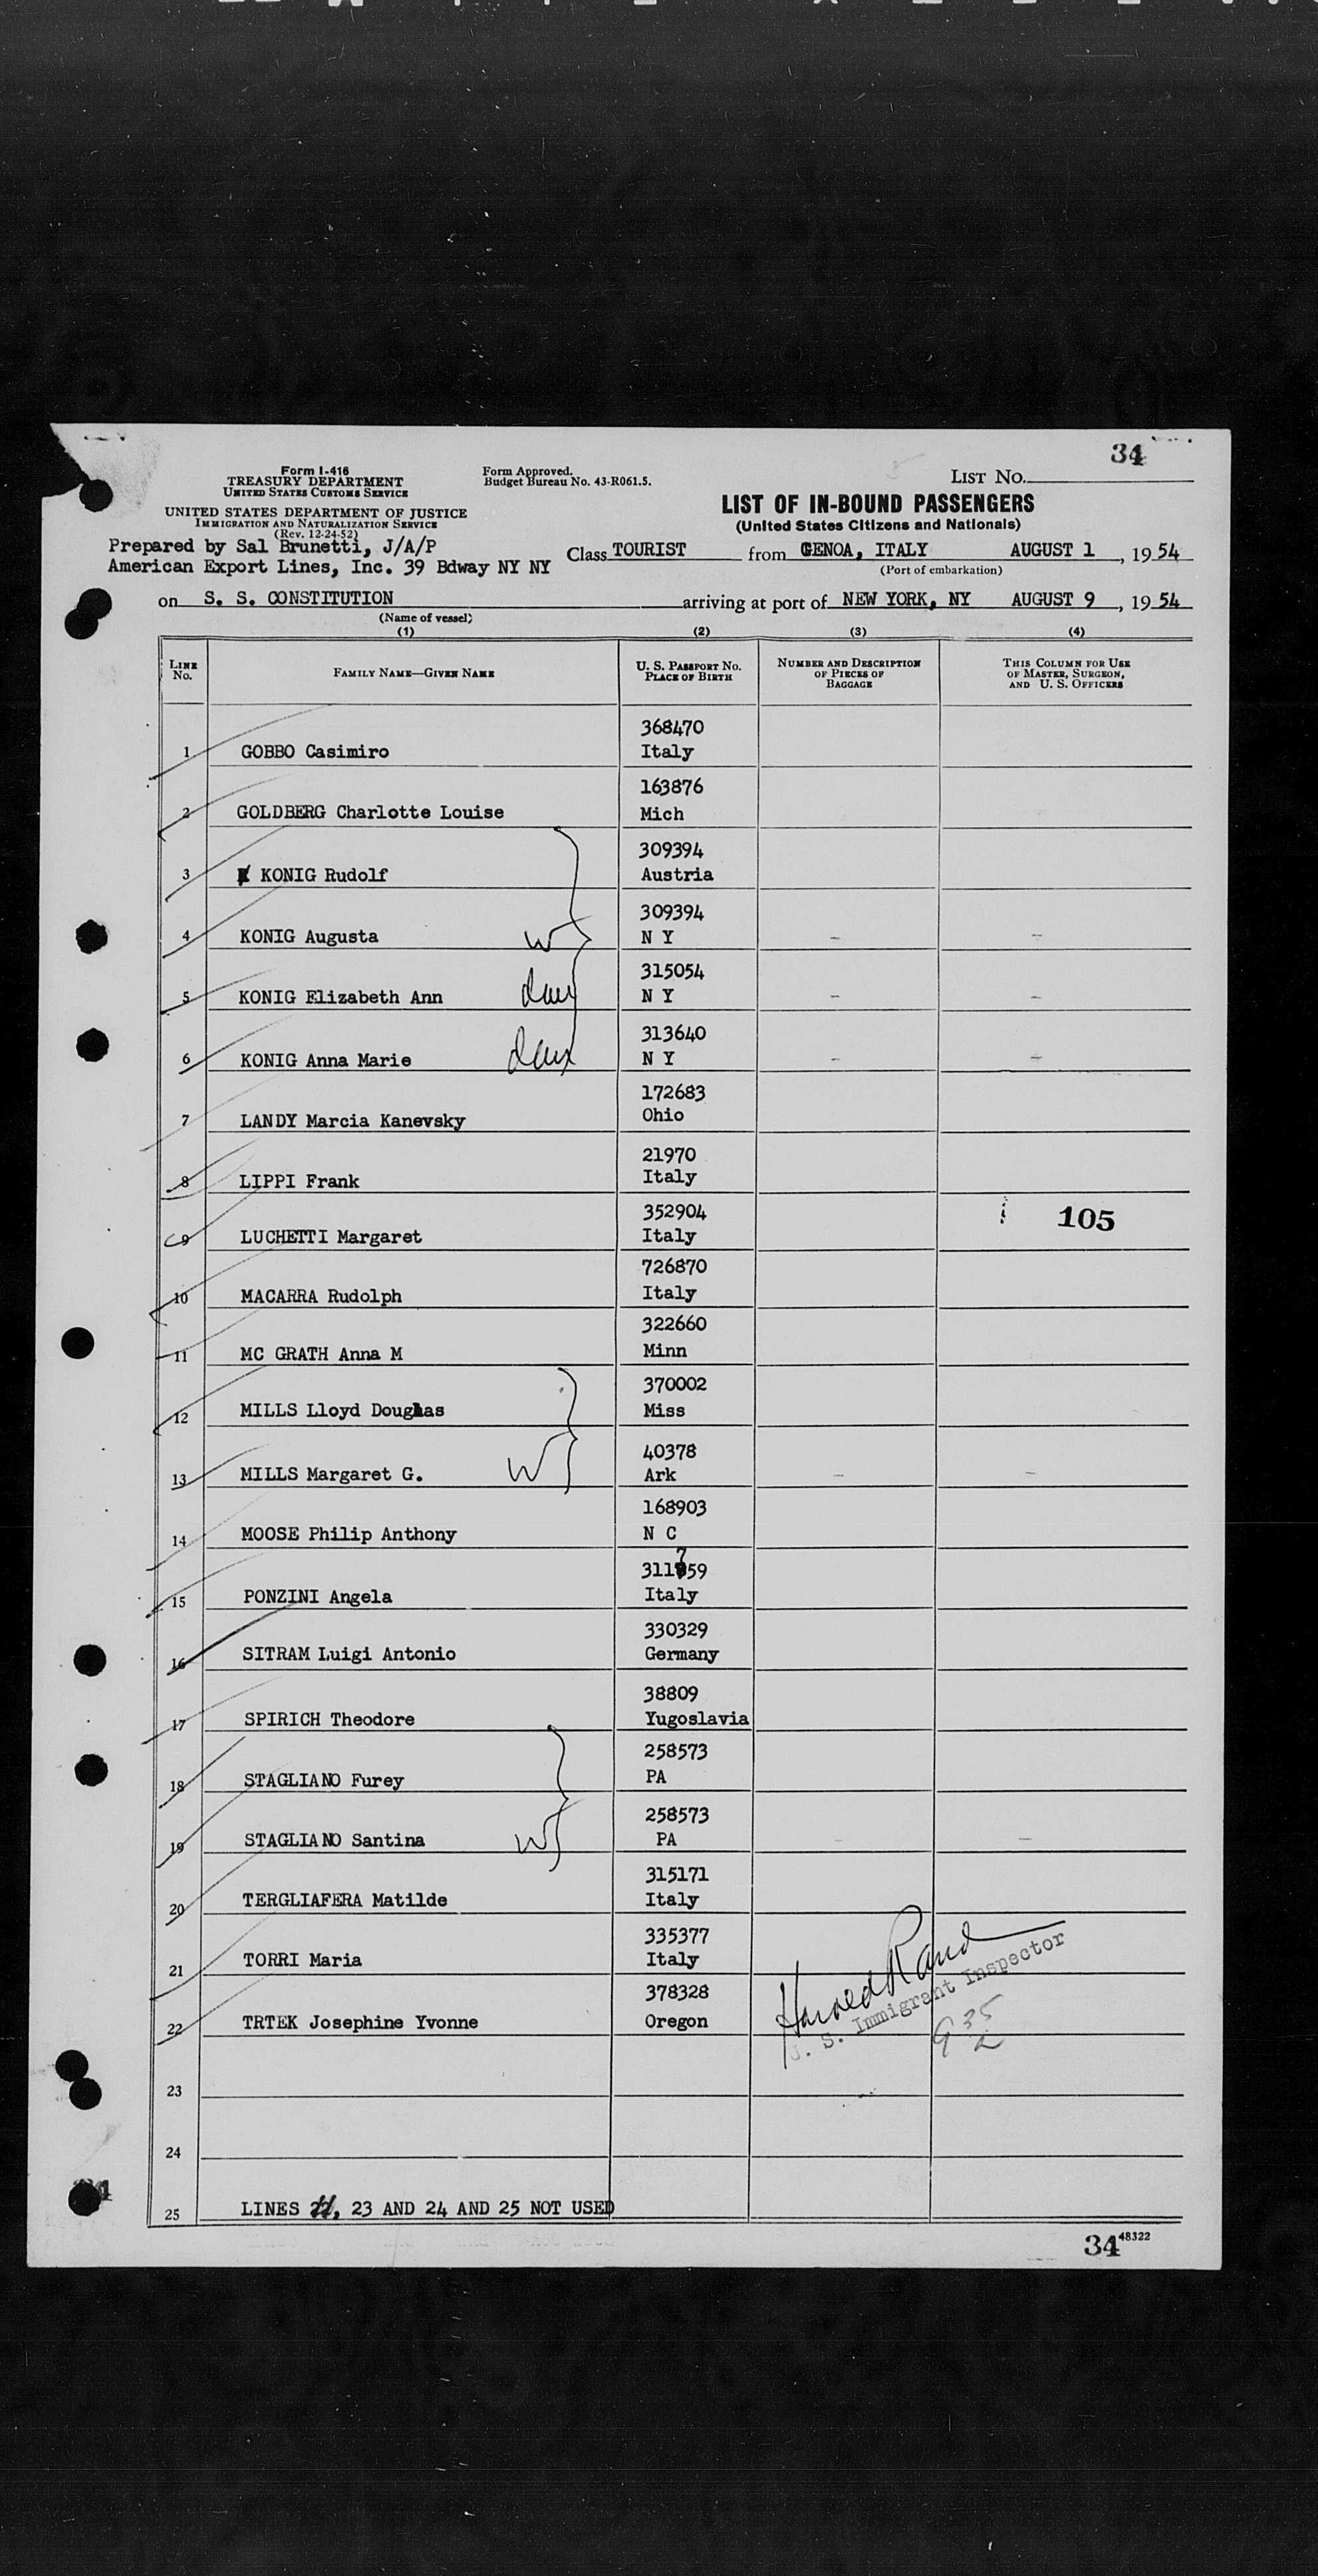 34
Form I-416
TREASURY DEPARTMENT
UNITED STATES CUSTOMS SERVICE
Form Approved.
Budget Bureau No. 43-R061.5.
LIST NO.
UNITED STATES DEPARTMENT OF JUSTICE
IMMIGRATION AND NATURALIZATION SERVICE
(Rev. 12-24-52)
LIST OF IN-BOUND PASSENGERS
(United States Citizens and Nationals)
Prepared by Sal Brunetti, J/A/P
American Export Lines, Inc. 39 Bdway NY NY
Class TOURIST from GENOA, ITALY AUGUST 1, 1954
(Port of embarkation)
on S. S. CONSTITUTION arriving at port of NEW YORK, NY AUGUST 9, 1954
(Name of vessel)
(1) (2) (3) (4)
LINE No.
FAMILY NAME—GIVEN NAME
U. S. PASSPORT NO.
PLACE OF BIRTH
NUMBER AND DESCRIPTION
OF PIECES OF
BAGGAGE
THIS COLUMN FOR USE
OF MASTER, SURGEON,
AND U. S. OFFICERS
368470
1 GOBBO Casimiro Italy
163876
2 GOLDBERG Charlotte Louise Mich
309394
3 KONIG Rudolf Austria
309394
4 KONIG Augusta W N Y - -
315054
5 KONIG Elizabeth Ann dau N Y - -
313640
6 KONIG Anna Marie dau N Y - -
172683
7 LANDY Marcia Kanevsky Ohio
21970
8 LIPPI Frank Italy
352904
9 LUCHETTI Margaret Italy 105
726870
10 MACARRA Rudolph Italy
322660
11 MC GRATH Anna M Minn
370002
12 MILLS Lloyd Douglas Miss
40378
13 MILLS Margaret G. W Ark - -
168903
14 MOOSE Philip Anthony N C
311759
15 PONZINI Angela Italy
330329
16 SITRAM Luigi Antonio Germany
38809
17 SPIRICH Theodore Yugoslavia
258573
18 STAGLIANO Furey PA
258573
19 STAGLIANO Santina W PA - -
315171
20 TERGLIAFERA Matilde Italy
335377
21 TORRI Maria Italy
378328
22 TRTEK Josephine Yvonne Oregon
Harold Rand
U. S. Immigrant Inspector
935
23
24
25 LINES 23 AND 24 AND 25 NOT USED
34 48322